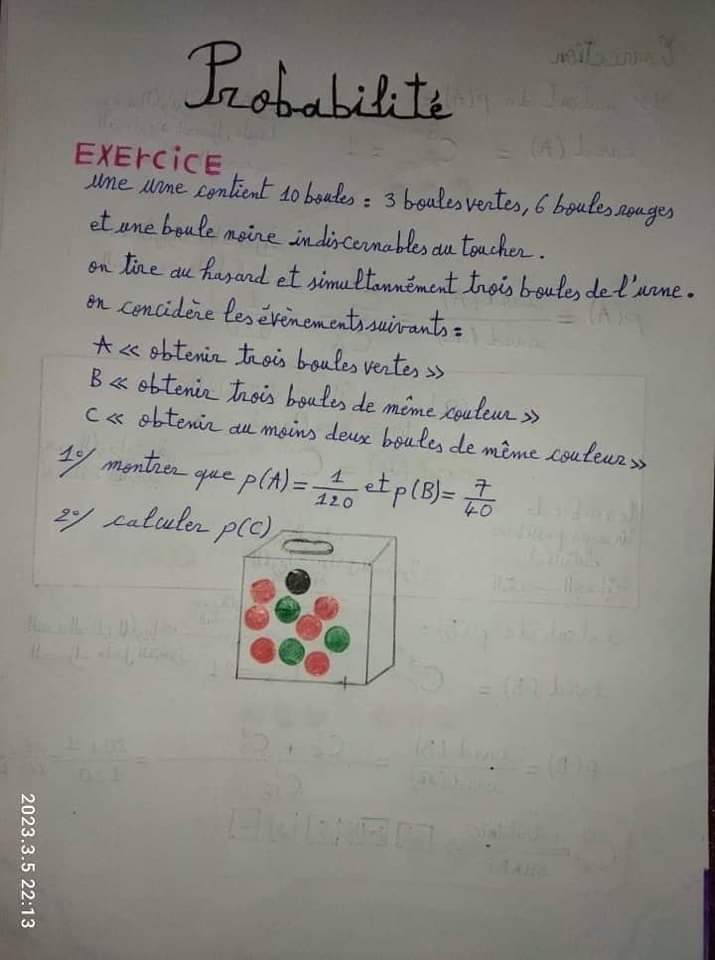 Probabilité
EXERCICE
une urne contient 10 boules : 3 boules vertes, 6 boules rouges
et une boule noire indiscernables au toucher.
on tire au hasard et simultannément trois boules de l'urne.
on concidère les évènements suivants :
A << obtenir trois boules vertes >>
B << obtenir trois boules de même couleur >>
C << obtenir au moins deux boules de même couleur >>
1°/ montrer que p(A) = 1/120 et p(B) = 7/40
2°/ calculer p(C)
2023.3.5 22:13